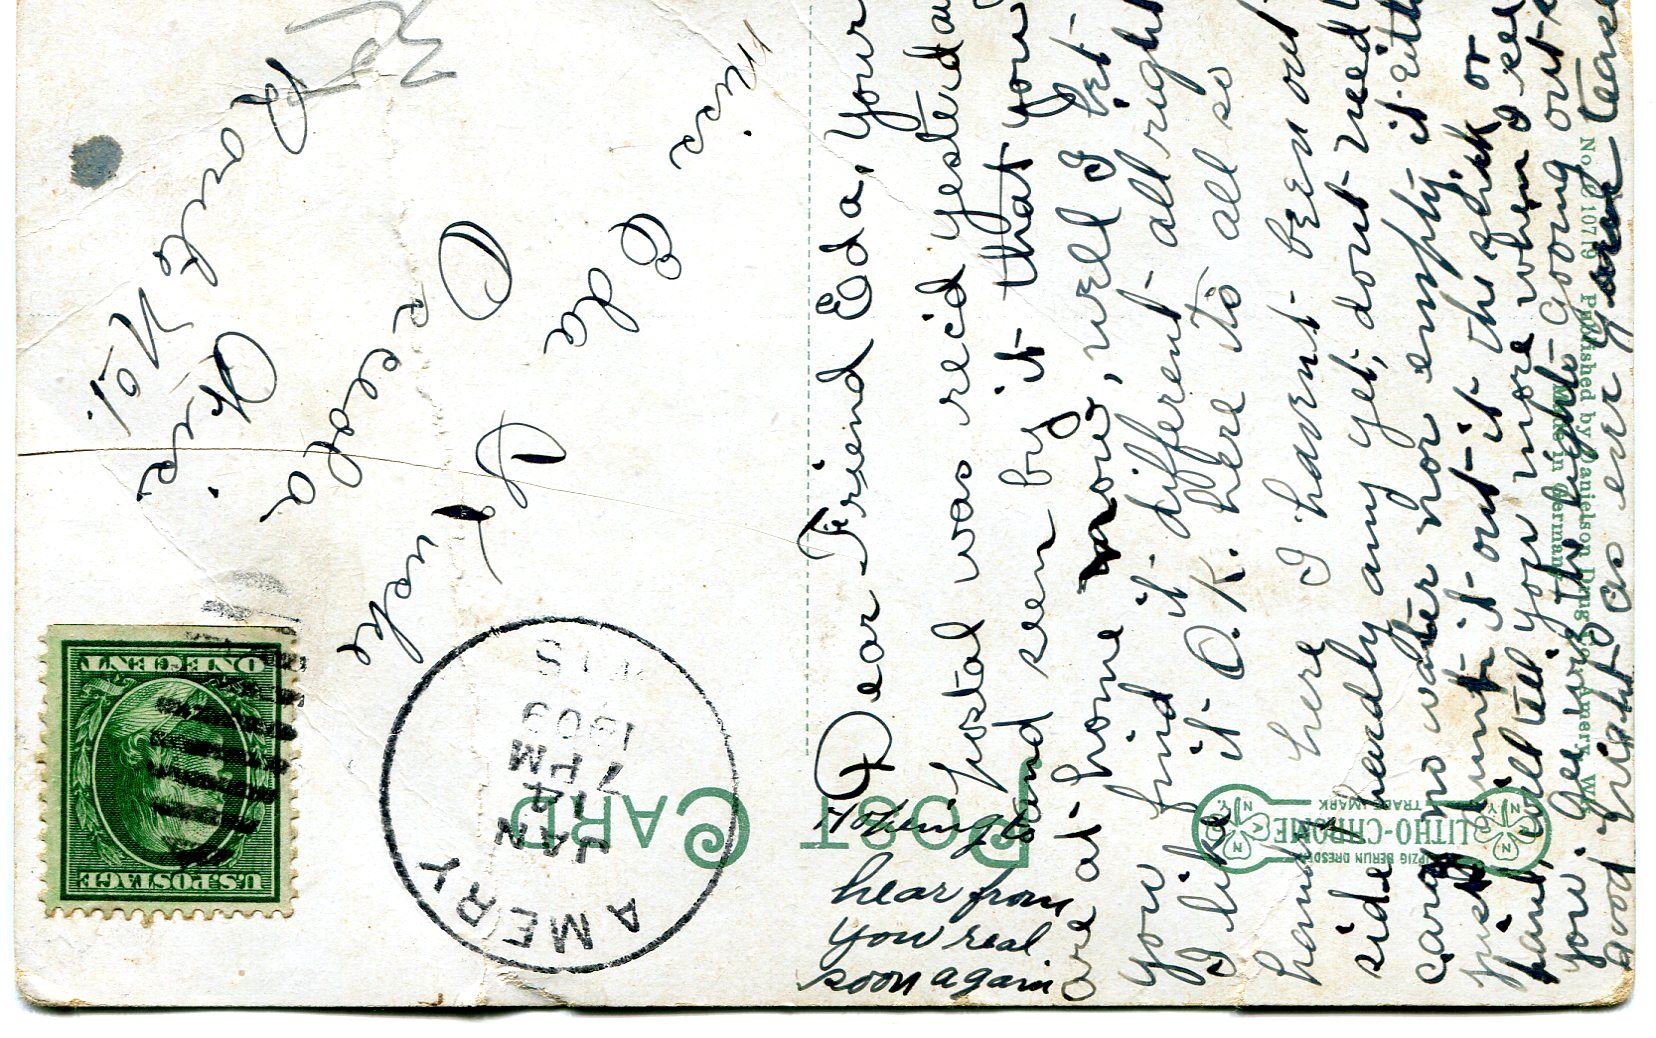 POST CARD
U.S. POSTAGE
ONE CENT
AMERY
JAN
14
7 PM
1909
WIS
LITHO-CHROME
TRADE MARK
LEIPZIG BERLIN DRESDEN
N.Y.
No. 10719 Published by Danielson Drug Amery, Wis.
Made in Germany
Miss
Eda
Osceola
Park Ave.
Wis.
Dear Friend Eda, Your
postal was rec'd yesterda
and seen by it that you
are at home now, well I bet
you find it different allright
I like it O.K. here its all so
here I havent been out
side heardly any yet, dont need
carry no water nor empty it eith
just dump it out it the sink or
will tell you more when I see
you. Gee its Going out
good night as ever your
Hopeing to
hear from
you real
soon again